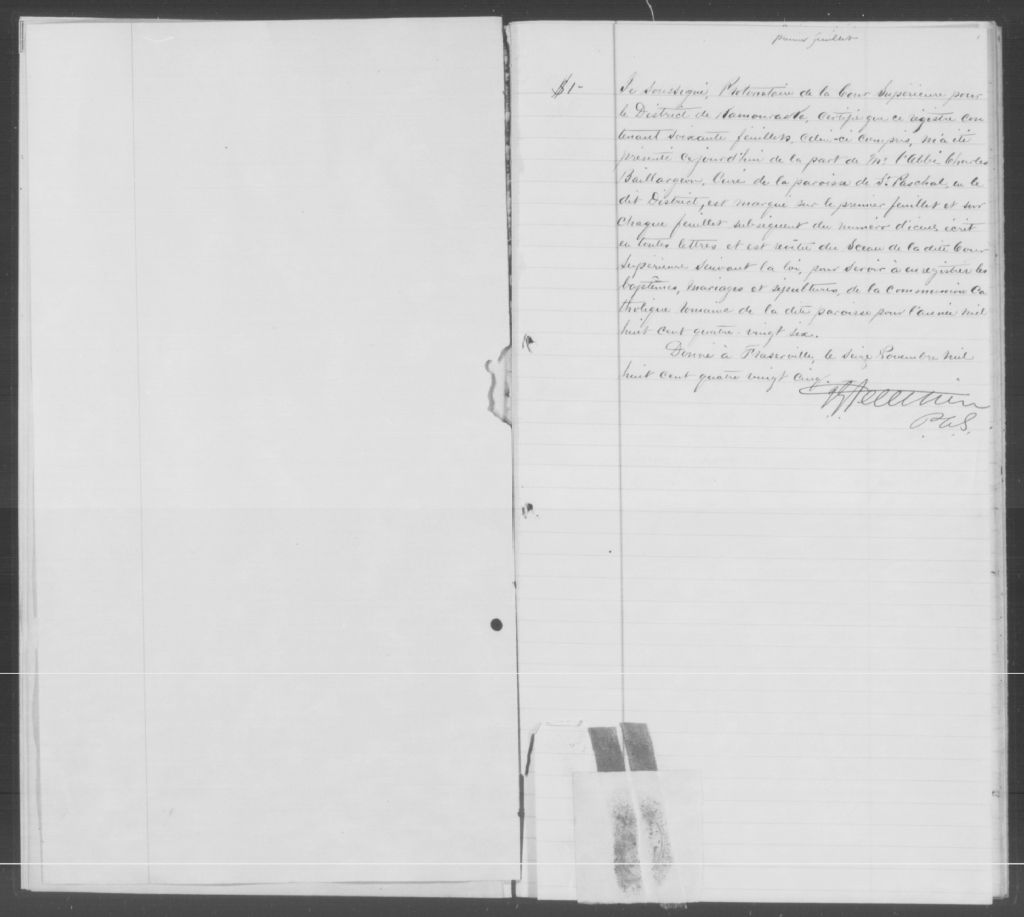 premier feuillet
$1-
Je soussigné, Protonotaire de la Cour Supérieure pour
le District de Kamouraska, certifie que ce régistre con
tenant soixante feuillets, celui-ci compris, m'a été
présenté aujourd'hui de la part de Mr l'Abbé Charles
Baillargeon, Curé de la paroisse de St Paschal, en le
dit District, est marqué sur le premier feuillet et sur
chaque feuillet subséquent du numéro d'iceux écrit
en toutes lettres et est revêtu du Sceau de la dite Cour
Supérieure suivant la loi, pour servir à enregistrer les
baptêmes, mariages et sépultures, de la communion Ca
tholique romaine de la dite paroisse pour l'année mil
huit cent quatre-vingt six.
Donné à Fraserville, le seize Novembre mil
huit cent quatre vingt cinq.
Pelletier
P.C.S.